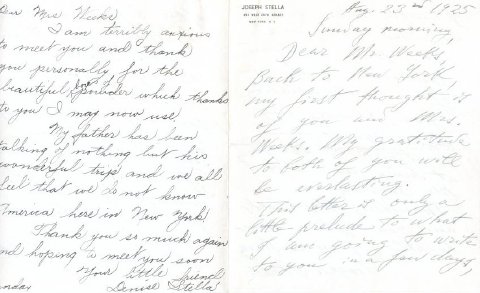 Dear Mrs Weeks
I am terribly anxious
to meet you and thank
you personally for the
beautiful powder which thanks
to you I may now use.
My father has been
talking of nothing but his
wonderful trip and we all
feel that we do not know
America here in New York
Thank you so much again
and hoping to meet you soon
Your little friend
Denise Stella
JOSEPH STELLA
NEW YORK, N.Y.
Aug. 23rd 1925
Sunday morning,
Dear Mr. Weeks,
Back to New York
my first thought is
of you and Mrs.
Weeks. My gratitude
to both of you will
be everlasting.
This letter is only a
little prelude to what
I am going to write
to you in a few days,